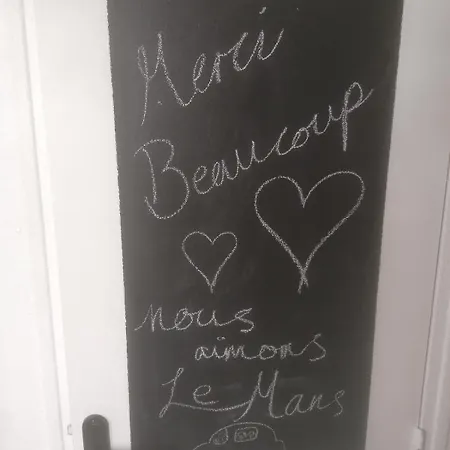 Merci
Beaucoup
nous
aimons
Le Mans